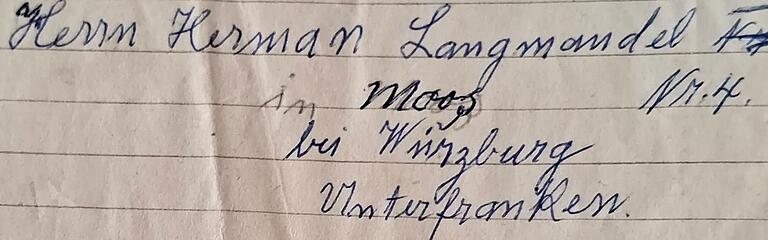 Herrn Herman Langmandel
in Moos Nr. 4.
bei Würzburg
Unterfranken.